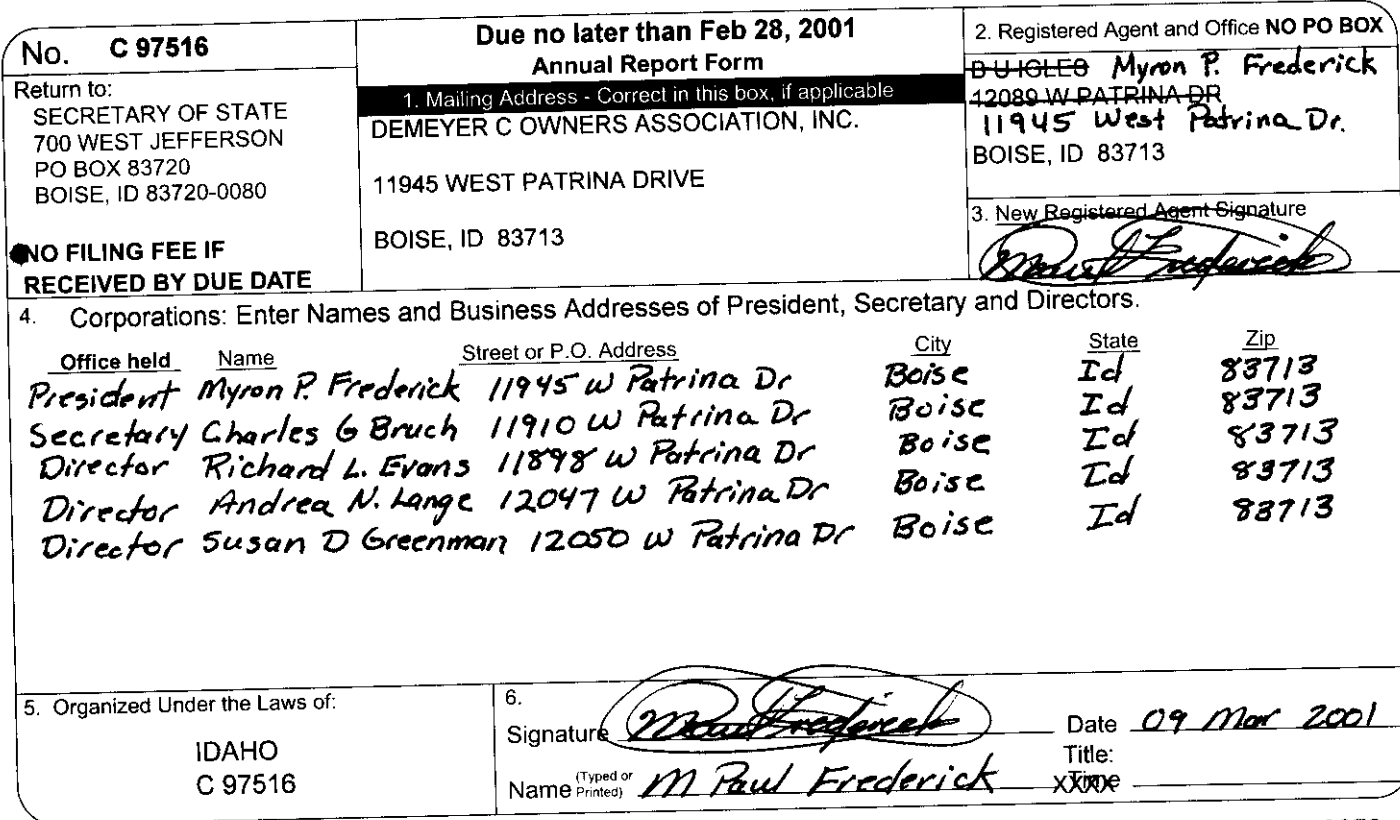 No. C 97516
Return to:
SECRETARY OF STATE
700 WEST JEFFERSON
PO BOX 83720
BOISE, ID 83720-0080
NO FILING FEE IF
RECEIVED BY DUE DATE
Due no later than Feb 28, 2001
Annual Report Form
1. Mailing Address - Correct in this box, if applicable
DEMEYER C OWNERS ASSOCIATION, INC.
11945 WEST PATRINA DRIVE
BOISE, ID 83713
2. Registered Agent and Office NO PO BOX
Myron P. Frederick
12089 W PATRINA DR
11945 West Patrina Dr.
BOISE, ID 83713
3. New Registered Agent Signature
4. Corporations: Enter Names and Business Addresses of President, Secretary and Directors.
Office held Name Street or P.O. Address City State Zip
President Myron P. Frederick 11945 W Patrina Dr Boise Id 83713
Secretary Charles G Bruch 11910 W Patrina Dr Boise Id 83713
Director Richard L. Evans 11898 W Patrina Dr Boise Id 83713
Director Andrea N. Lange 12047 W Patrina Dr Boise Id 83713
Director Susan D Greenman 12050 W Patrina Dr Boise Id 83713
5. Organized Under the Laws of:
IDAHO
C 97516
6.
Signature Date 09 Mar 2001
Name (Typed or Printed) M Paul Frederick Title: